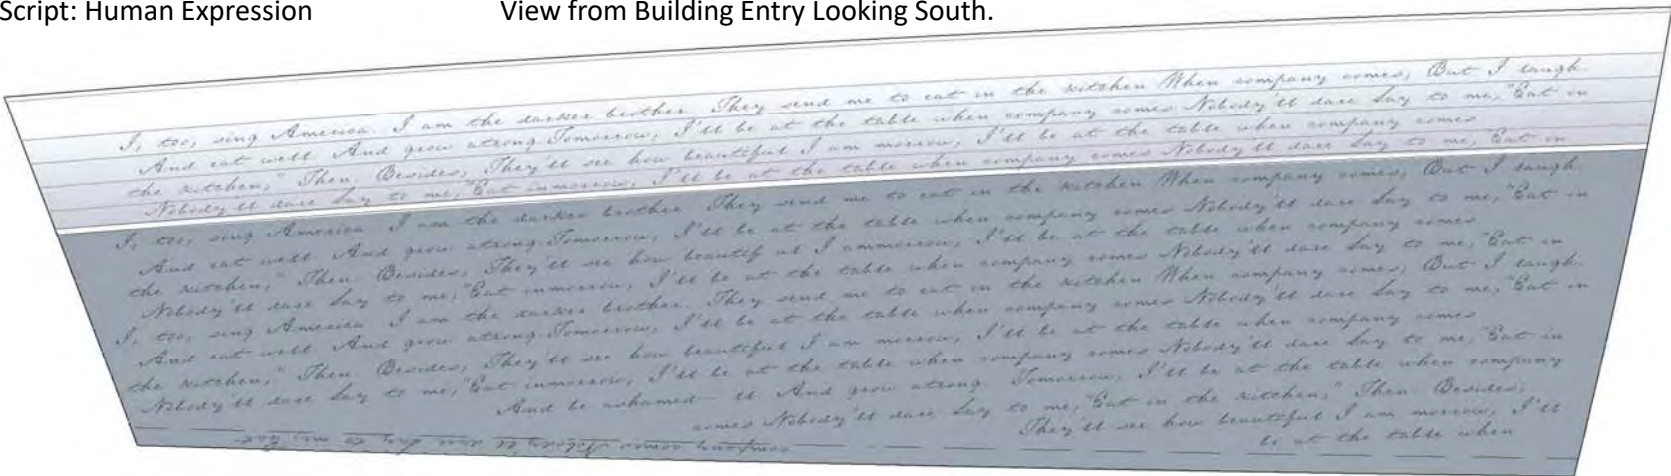 Script: Human Expression
View from Building Entry Looking South.
I, too, sing America. I am the darker brother. They send me to eat in the kitchen When company comes, But I laugh.
And eat well. And grow strong. Tomorrow, I'll be at the table when company comes Nobody'll dare Say to me, "Eat in
the kitchen," Then. Besides, They'll see how beautiful I am morrow, I'll be at the table when company comes
Nobody'll dare Say to me, "Eat inmorrow, I'll be at the table when company comes Nobody'll dare Say to me, "Eat in
I, too, sing America. I am the darker brother. They send me to eat in the kitchen When company comes, But I laugh
And eat well. And grow strong. Tomorrow, I'll be at the table when company comes Nobody'll dare Say to me, "Eat in
the kitchen," Then. Besides, They'll see how beautif ul I ammorrow, I'll be at the table when company comes
Nobody'll dare Say to me, "Eat inmorrow, I'll be at the table when company comes Nobody'll dare Say to me, "Eat in
I, too, sing America. I am the darker brother. They send me to eat in the kitchen When company comes, But I laugh.
And eat well. And grow strong. Tomorrow, I'll be at the table when company comes Nobody'll dare Say to me, "Eat in
the kitchen," Then. Besides, They'll see how beautiful I am morrow, I'll be at the table when company comes
Nobody'll dare Say to me, "Eat inmorrow, I'll be at the table when company comes Nobody'll dare Say to me, "Eat in
And be ashamed— ll And grow strong. Tomorrow, I'll be at the table when company
comes Nobody'll dare Say to me, "Eat in the kitchen," Then. Besides,
They'll see how beautiful I am morrow, I'll
be at the table when
company comes Nobody'll dare Say to me,